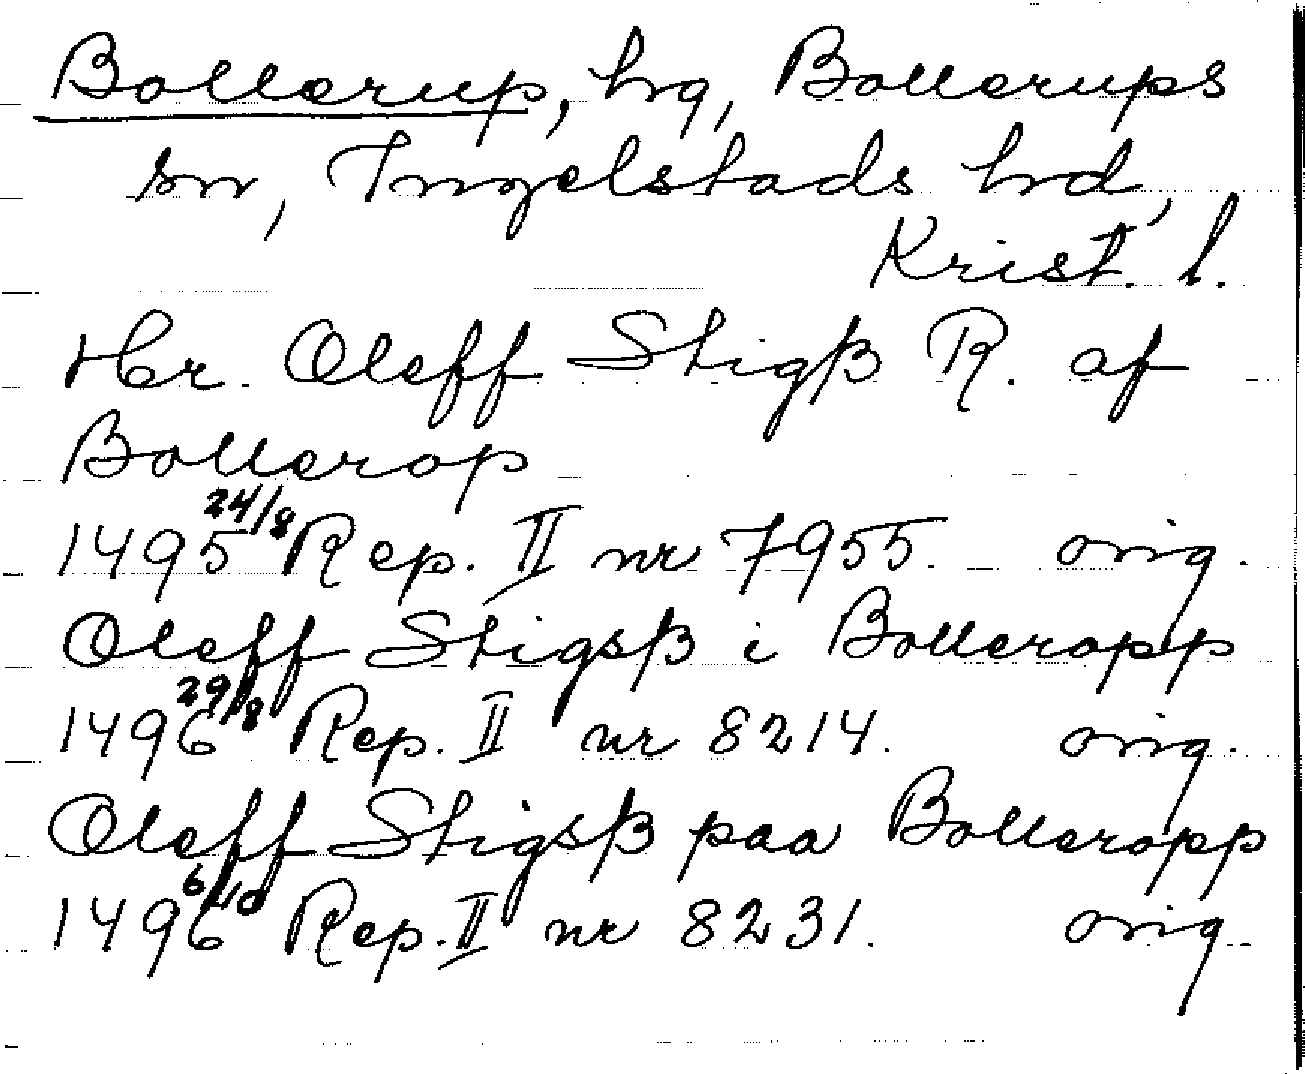 Bollerup, hg, Bollerups
sn, Ingelstads hd,
Krist. l.
Hr. Oleff Stigß R. af
Bollerop
1495 24/8 Rep. II nr 7955. orig.
Oleff Stigsß i Bolleropp
1496 29/8 Rep. II nr 8214. orig.
Oleff Stigsß paa Bolleropp
1496 6/10 Rep. II nr 8231. orig.